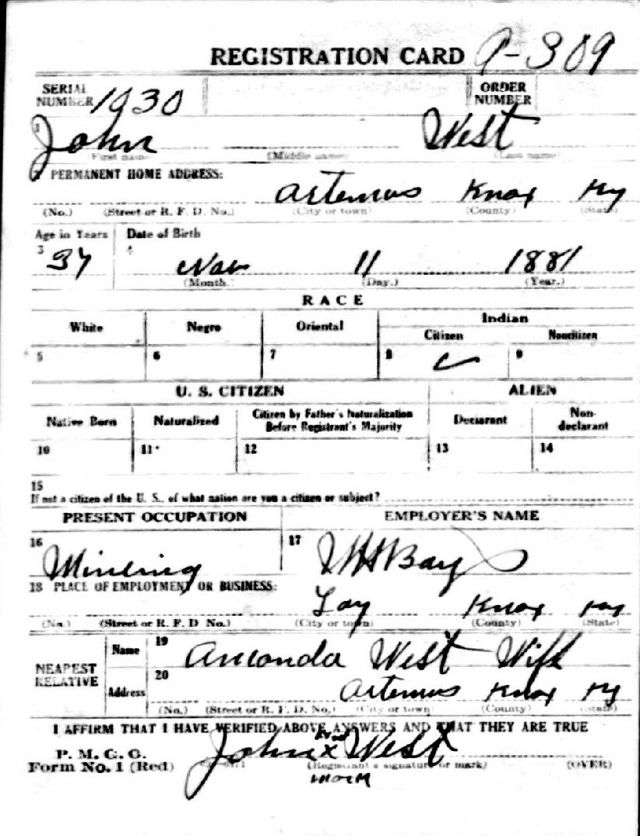 REGISTRATION CARD 9-309
SERIAL NUMBER 1930 ORDER NUMBER
1 John West
First name (Middle name) (Last name)
2 PERMANENT HOME ADDRESS:
Artemus Knox Ky
(No.) (Street or R. F. D. No.) (City or town) (County) (State)
Age in Years Date of Birth
3 37 4 Nov 11 1881
(Month.) (Day.) (Year.)
RACE
White Negro Oriental Indian
Citizen Noncitizen
5 6 7 8 ✓ 9
U. S. CITIZEN ALIEN
Native Born Naturalized Citizen by Father's Naturalization Before Registrant's Majority Declarant Non-declarant
10 11 12 13 14
15
If not a citizen of the U. S., of what nation are you a citizen or subject?
PRESENT OCCUPATION EMPLOYER'S NAME
16 Minering 17
18 PLACE OF EMPLOYMENT OR BUSINESS:
Knox Ky
(No.) (Street or R. F. D No.) (City or town) (County) (State)
NEAREST RELATIVE
Name 19 West Wife
Address 20 Artemus Knox Ky
(No.) (Street or R. F. D. No.) (City or town) (County) (State)
I AFFIRM THAT I HAVE VERIFIED ABOVE ANSWERS AND THAT THEY ARE TRUE
P. M. G. O.
Form No. 1 (Red) John x West
(Registrant's signature or mark) (OVER)
mark